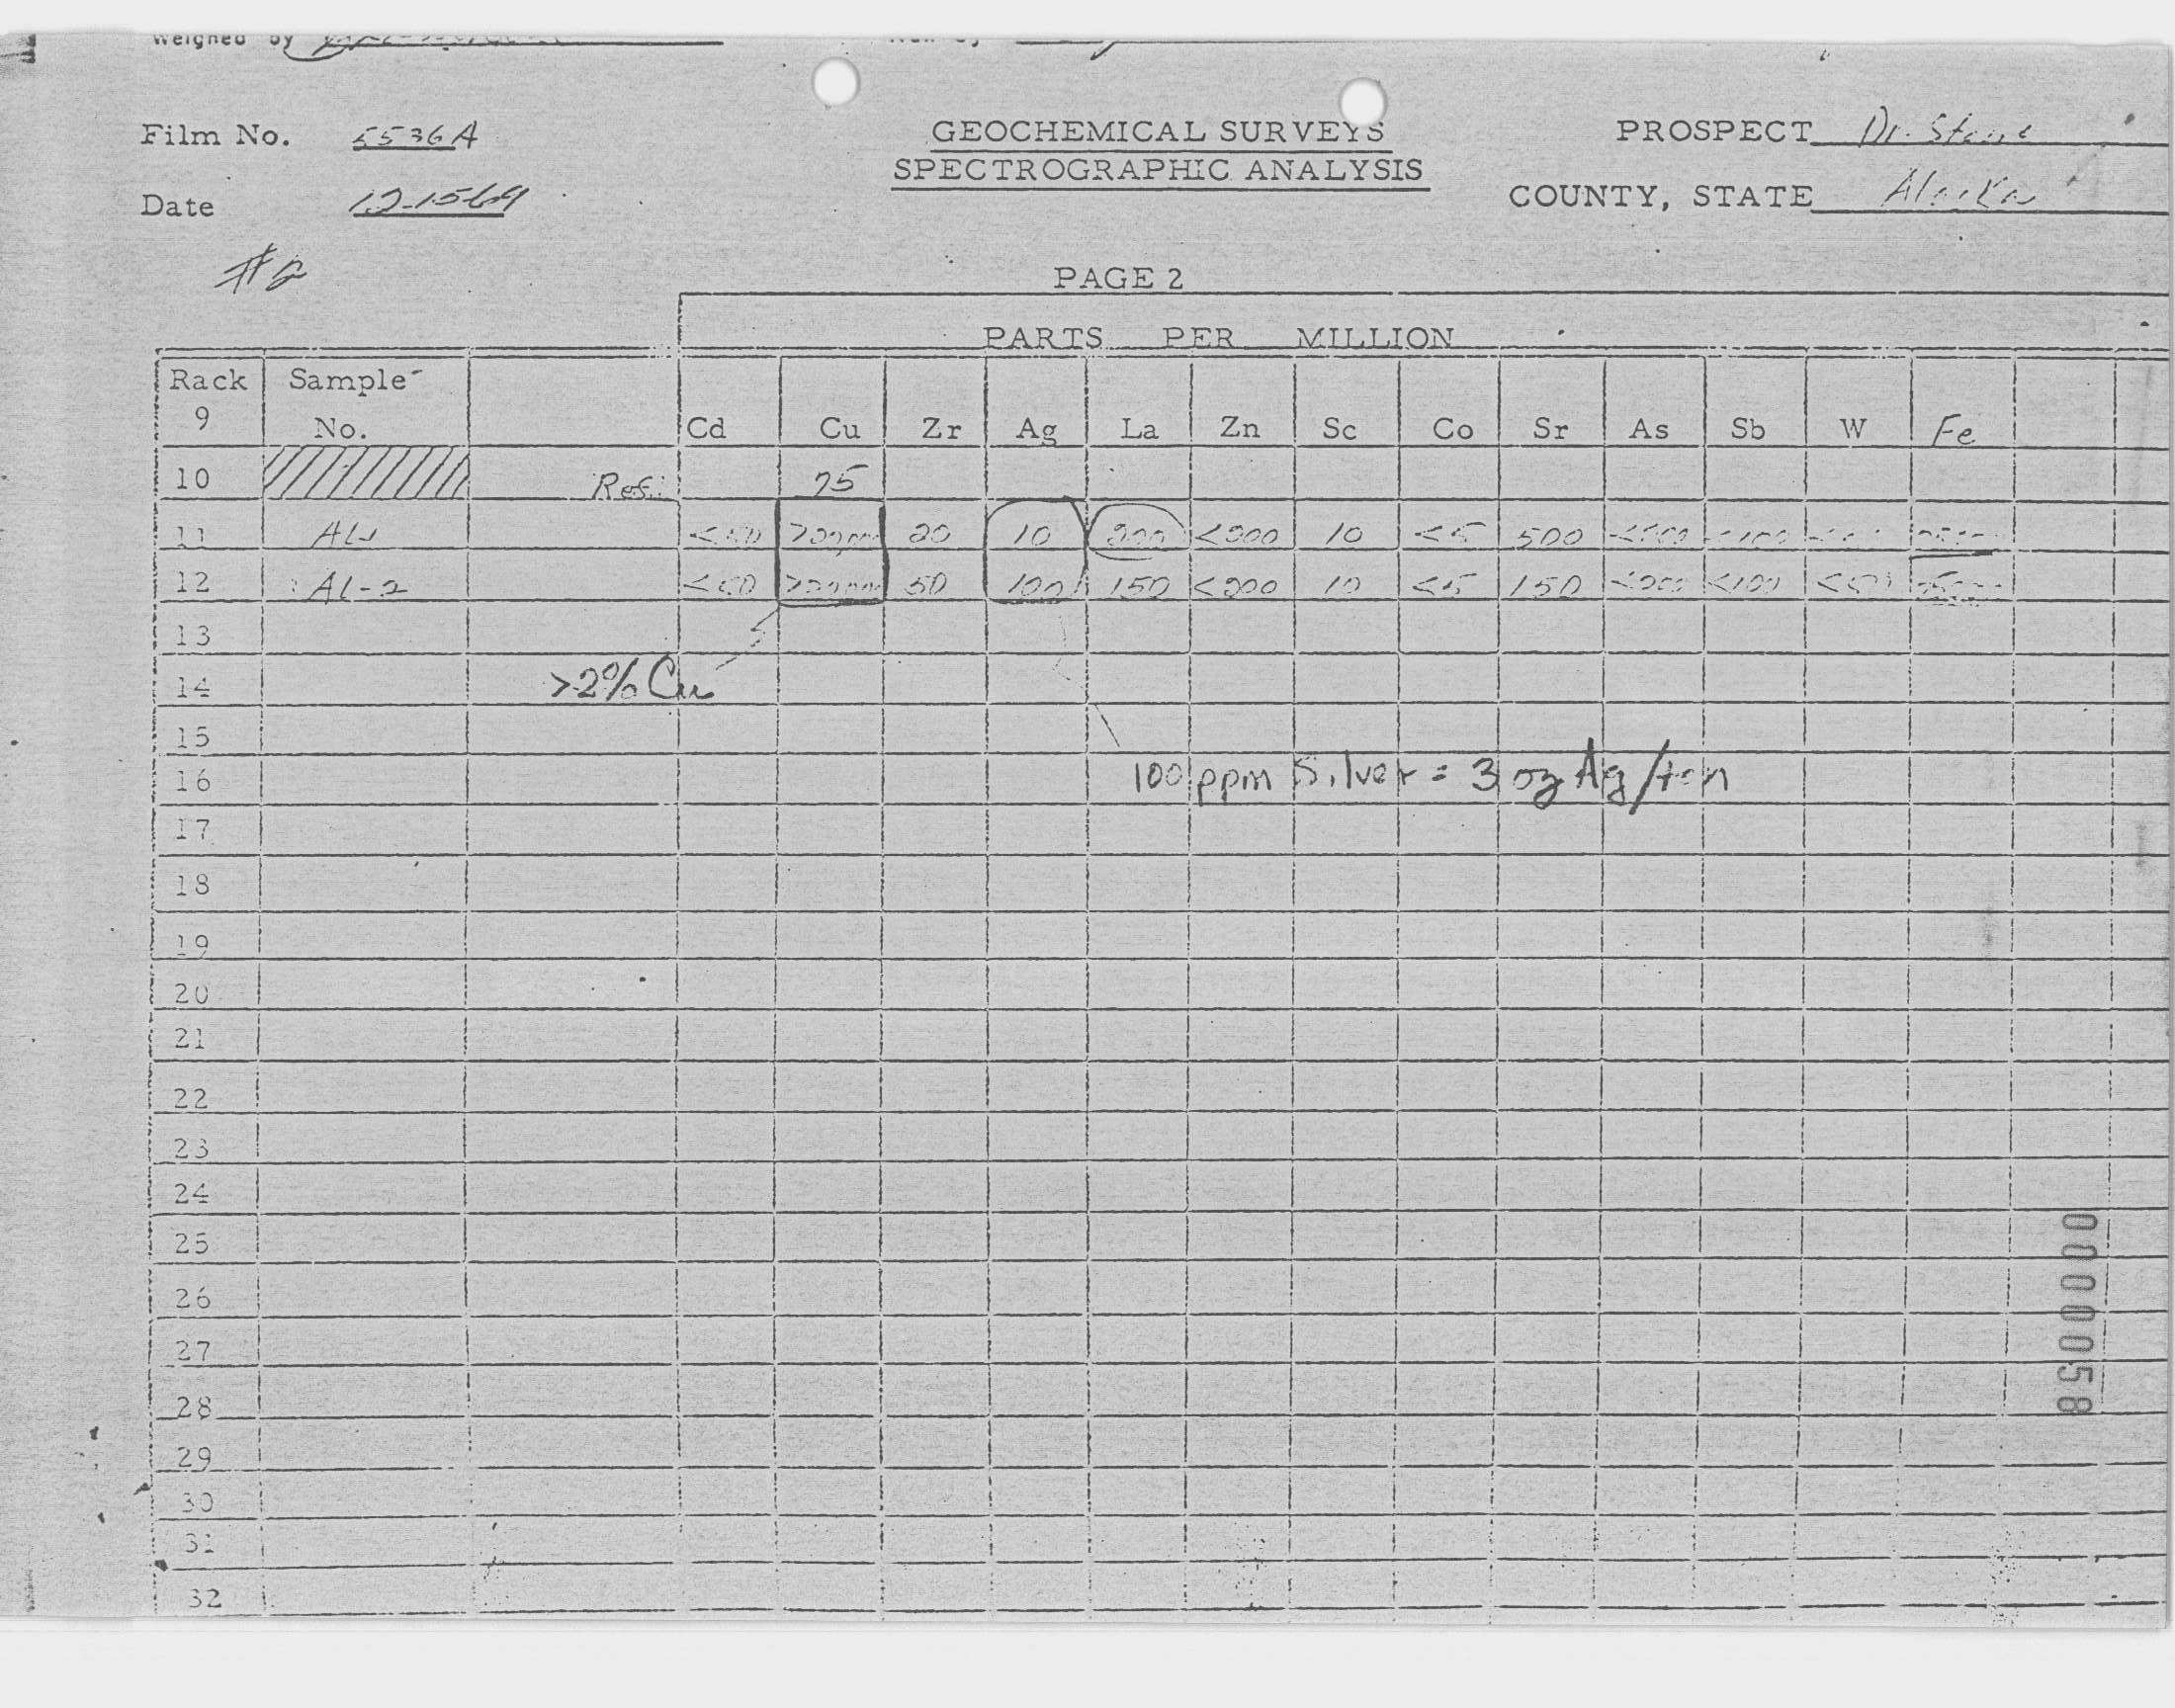 Weighed by
Film No. 5536A
GEOCHEMICAL SURVEYS
PROSPECT Dr. Stone
SPECTROGRAPHIC ANALYSIS
Date 12-15-69
COUNTY, STATE Alaska
#2
PAGE 2
PARTS PER MILLION
Rack Sample
9 No. Cd Cu Zr Ag La Zn Sc Co Sr As Sb W Fe
10 Ref. 75
11 AL-1 <50 20 10 200 <200 10 <5 500
12 AL-2 <50 50 100 150 <200 10 <5 150 <200 <100 <50
13
14 >2% Cu
15
16 100 ppm Silver = 3 oz Ag/ton
17
18
19
20
21
22
23
24
25
26
27
28
29
30
31
32
0000058